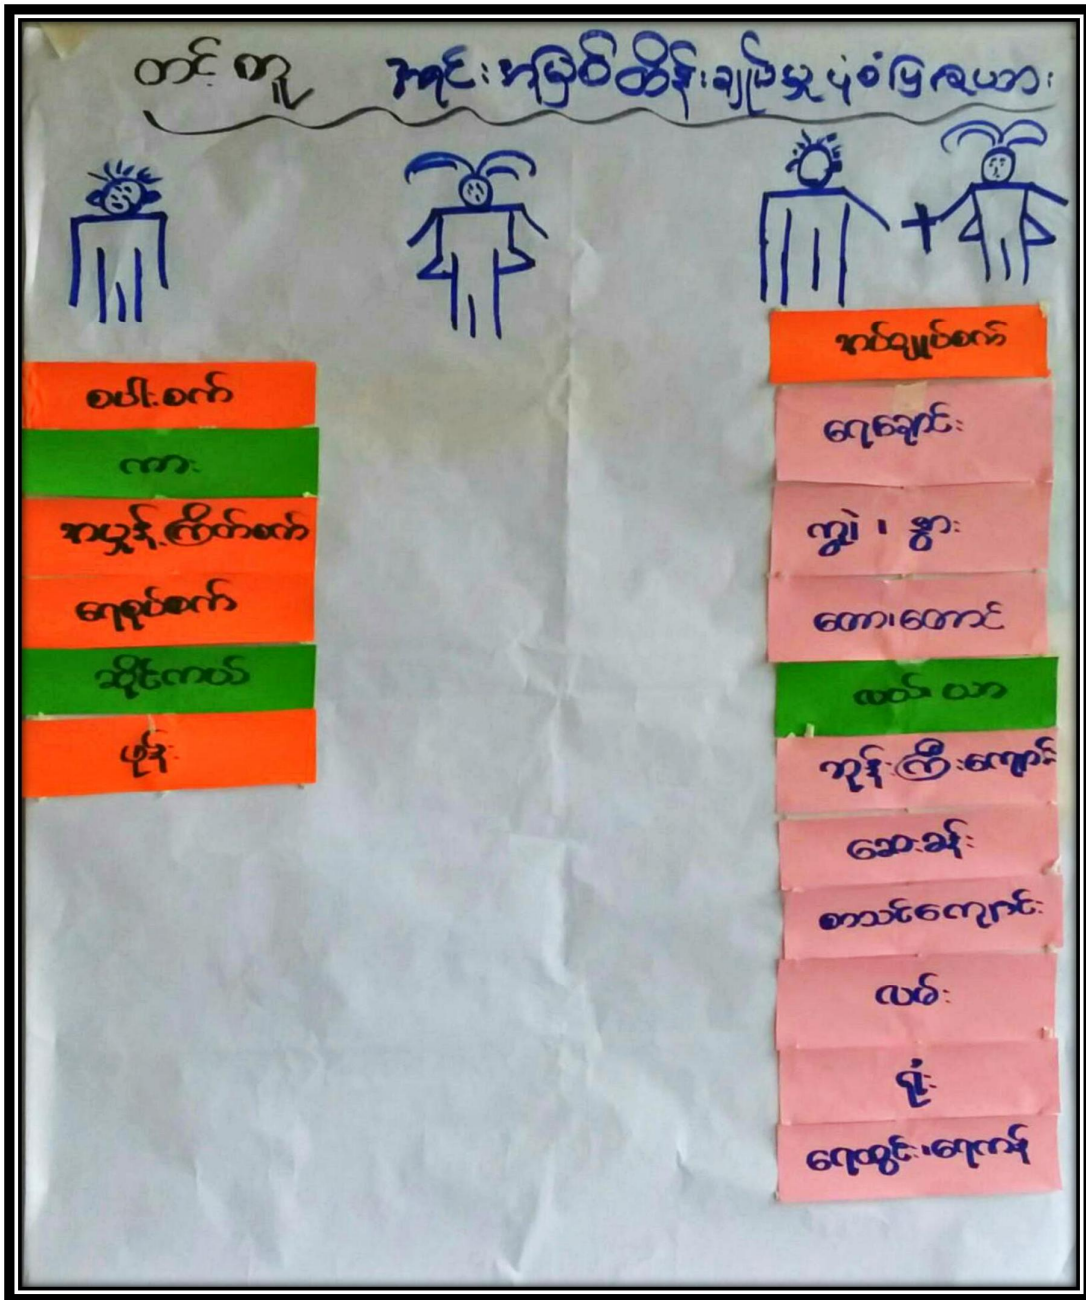 တင့်ကူ အရင်းအမြစ်ထိန်းချုပ်မှုပုံစံပြဇယား
စပါးစက်
ကား
အမှုန့်ကြိတ်စက်
ရေစုပ်စက်
ဆိုင်ကယ်
ဖုန်း
အပ်ချုပ်စက်
ရေချောင်း
ကျွဲ၊ နွား
တော၊တောင်
လယ်ယာ
ဘုန်းကြီးကျောင်း
ဆေးခန်း
စာသင်ကျောင်း
လမ်း
ရုံး
ရေတွင်း၊ရေကန်